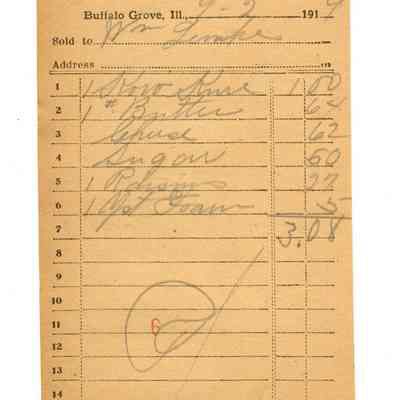 Buffalo Grove, Ill., 9-2 1919
Sold to Wm
Address
1 1 Kow Kure 1 00
2 1 # Butter 64
3 Cheese 62
4 Sugar 50
5 1 Raisins 27
6 1 Yst Foam 5
7 3.08
8
9
10
11 6
12
13
14